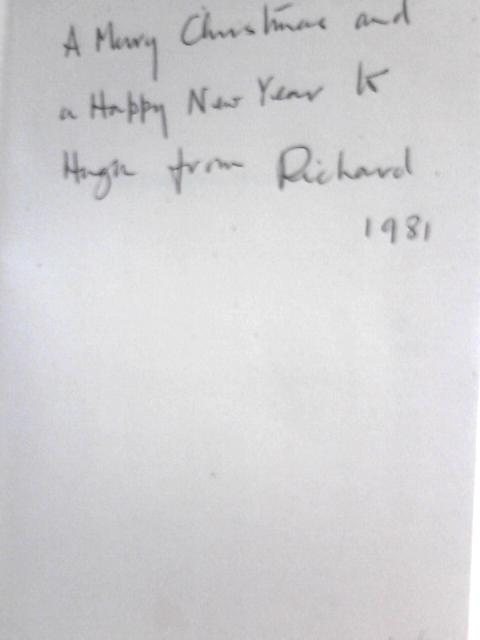 A Merry Christmas and
a Happy New Year to
Hugh from Richard.
1981